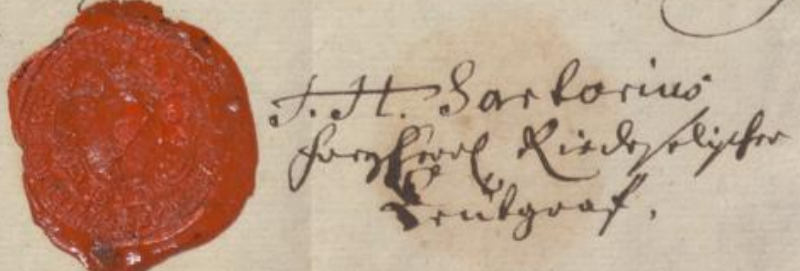 J. H. Sartorius
Freyherrl Riedeselischer
Centgraf.